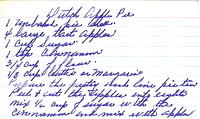 Dutch Apple Pie
1 unbaked pie shell
4 large tart apples
1 cup sugar
1 tsp Cinnamon
3/4 cup flour
1/3 cup butter or margarine
Prepare the pastry and line pie tin
Peel & cut the apples into eights
mix 1/2 cup of sugar with the
cinnamon and mix with apples